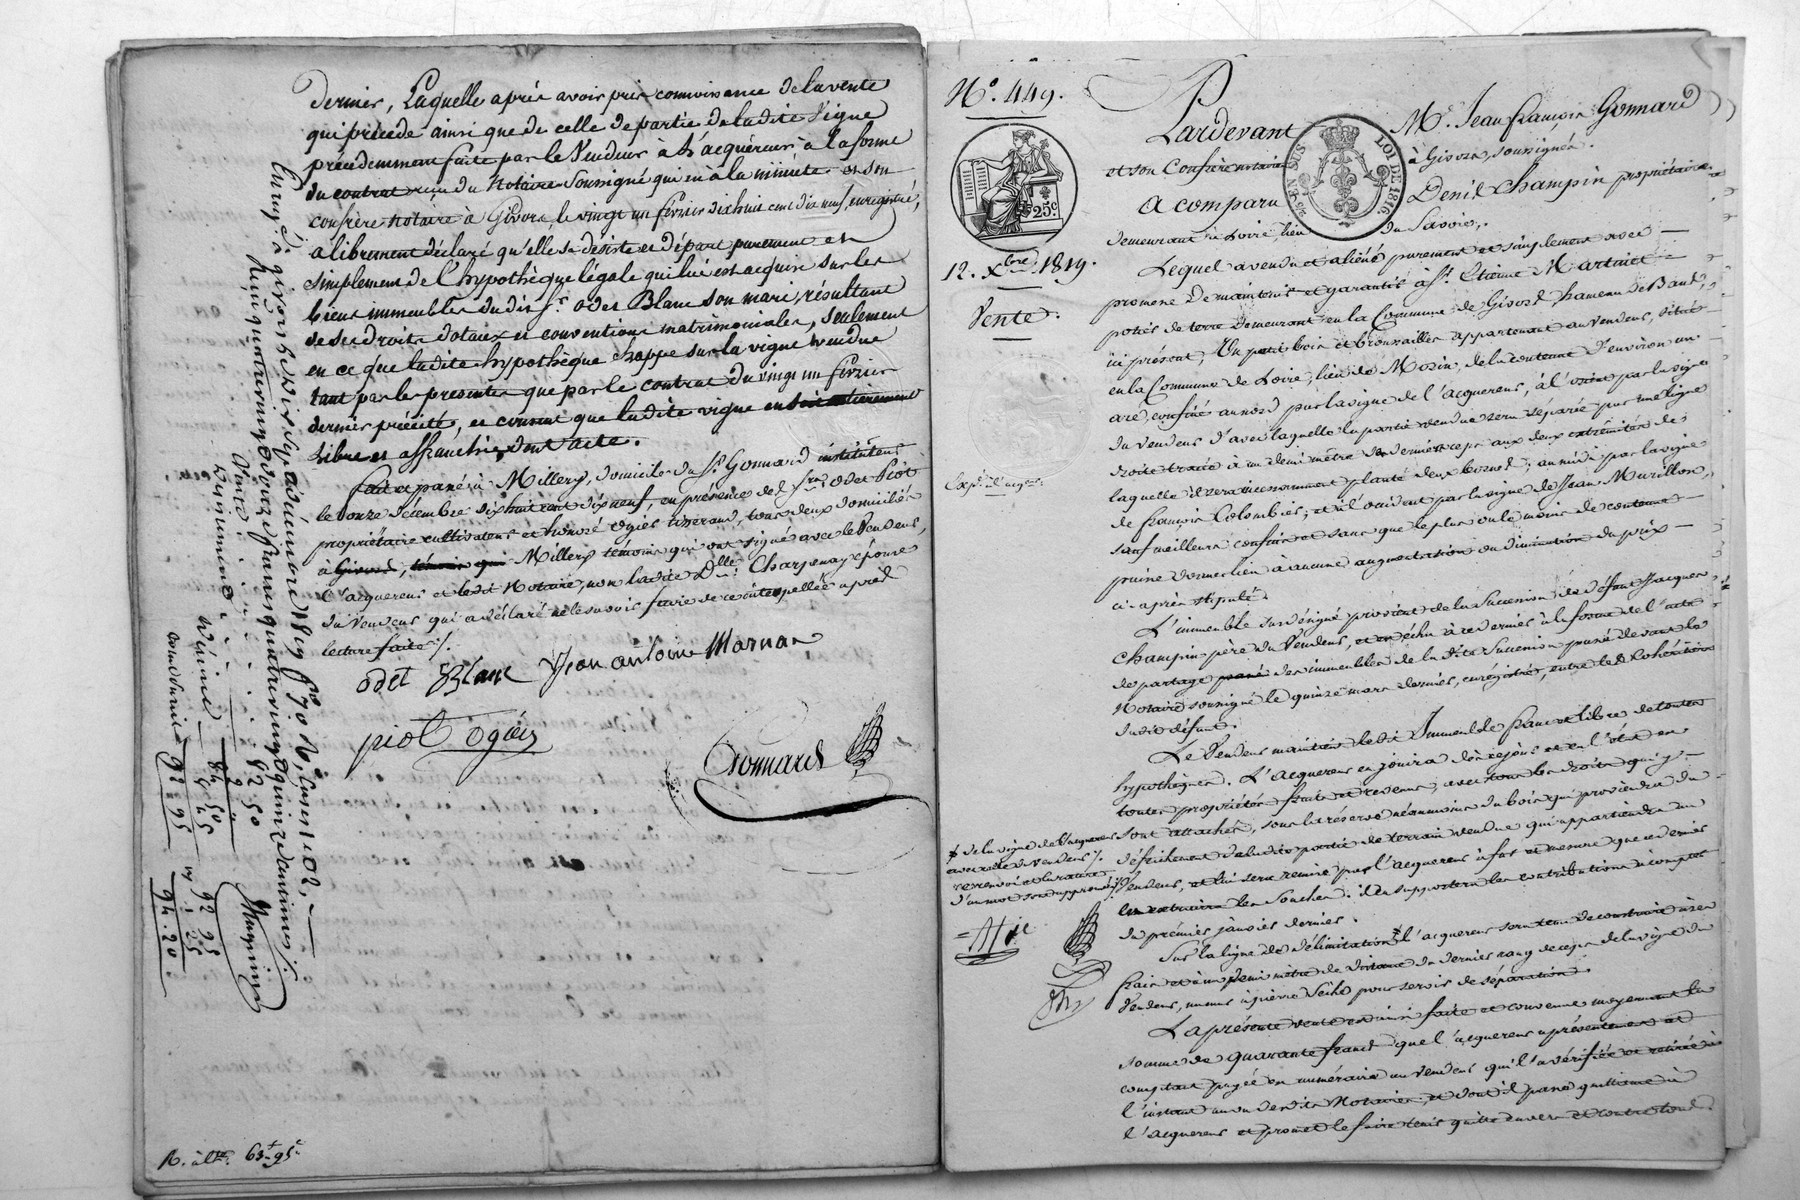 dernier, Laquelle après avoir pris connoissance de la vente
qui précède ainsi que de celle de partie de la dite Vigne
précédemment faite par le Vendeur à l'acquéreur à la forme
du contrat reçu du Notaire soussigné qui en a la minute et son
confrère notaire à Givors, le vingt un février dix huit cent dix neuf, enregistré,
a librement déclaré qu'elle se désiste et départ purement et
simplement de l'hypothèque légale qui lui est acquise sur les
biens immeubles du dit Sr. Odet Blanc son mari, résultant
de ses droits dotaux et conventions matrimoniales, seulement
en ce que la dite hypothèque frappe sur la vigne vendue
tant par les présentes que par le contrat du vingt un février
dernier précité, et consent que la dite vigne en soit entièrement
Libre et affranchie, dont acte.
fait et passé à Millery, domicile du Sr. Gonnard instituteur
le onze décembre dix huit cent dix neuf, en présence des Srs. Odet Piot
propriétaire cultivateur et honoré Ogier tisserand, tous deux domiciliés
à Givors, témoins qui Millery témoins qui ont signé avec le Vendeur,
L'acquereur et ledit Notaire, non ladite Dlle. Charpenay épouse
du Vendeur qui a déclaré ne le savoir faire de ce interpellée après
lecture faite ./.
odet Blanc Jean antoine Marnas
piot ogier
Gonnard
Enreg. à givors
décembre 1819 fo. 70
Reçu quatre vingt douze francs quatre vingt quinze centimes ./.
82 50
2 "
84 50
8 45
92 95
92 95
1 25
94. 20
R. à lre. 63f. 95c.
No. 449.
25c
12. Xbre. 1819.
Vente.
Expé. à l'acqr.
Pardevant Me. Jean françois Gonnard
et son Confrère notaire à Givors, soussignés.
EN SUS
LOI DE 1816
A comparu Denis Champin propriétaire
demeurant à Loire lieu du Savoie,.
Lequel a vendu et aliéné purement et simplement avec
promesse de maintenir et garantir à Sr. Etienne Martinet
potier de terre demeurant en la Commune de Givors hameau de Bans,
ici présent, Un petit bois et brousailles appartenant au Vendeur, situé
en la Commune de Loire, lieu de Mosin, de la contenue d'environ un
are, confiné au nord par la vigne de l'acquereur, à l'orient par la vigne
du vendeur d'avec laquelle la partie vendue sera séparée par une ligne
droite tracée à un demi mètre du dernier ceps aux deux extrémités de
laquelle il sera incessamment planté deux bornes; au midi par la vigne
de françois Colombier; et à l'occident par la vigne de Jean Murillon,
sauf meilleurs confins et sans que le plus ou le moins de contenue
puisse donner lieu à aucune augmentation ou diminution du prix
ci-après stipulé.
L'immeuble sus désigné provient de la Succession de défunt Jacques
Champin père du Vendeur, et est échu à ce dernier à la forme de l'acte
de partage passé des immeubles de la dite Succession passé devant le
Notaire soussigné le quinze mars dernier, enregistré, entre les Cohéritiers
dudit défunt.
Le Vendeur maintient ledit Immeuble franc et libre de toutes
hypothèques. L'acquereur en jouira dès ce jour et en l'état en
toutes propriétés fruits et revenus, avec tous les droits qui y
sont attachés, sous la réserve néanmoins du bois qui proviendra du
défrichement de la dite partie de terrain vendue qui appartiendra au
Vendeur, et lui sera remise par l'acquereur à fur et mesure que ce dernier
en extraira les Souches. il en supportera les contributions à compter
du premier janvier dernier.
Sur la ligne de délimitation ≠ l'acquereur sera tenu de construire à ses
frais et à un demi mètre de distance du dernier rang de ceps de la vigne du
Vendeur, un mur à pierre Seche pour servir de séparation.
La présente vente est ainsi faite et convenue moyennant la
somme de quarante francs que l'acquereur a présentement et
comptant payée en numéraire au vendeur qui l'a vérifiée et retirée à
l'instant au vu desdits Notaires, et dont il passe quittance à
l'acquereur et promet le faire tenir quitte envers et contre tous.
≠ de la vigne de l'acquereur
avec celle du Vendeur ./.
ce renvoi et la rature
d'un mot sont approuvés